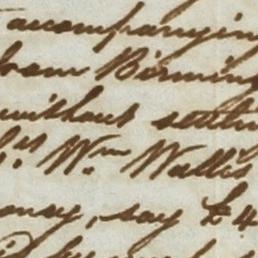 accompanying
from Birming
without settin
Wm Wallis
oney, say £4